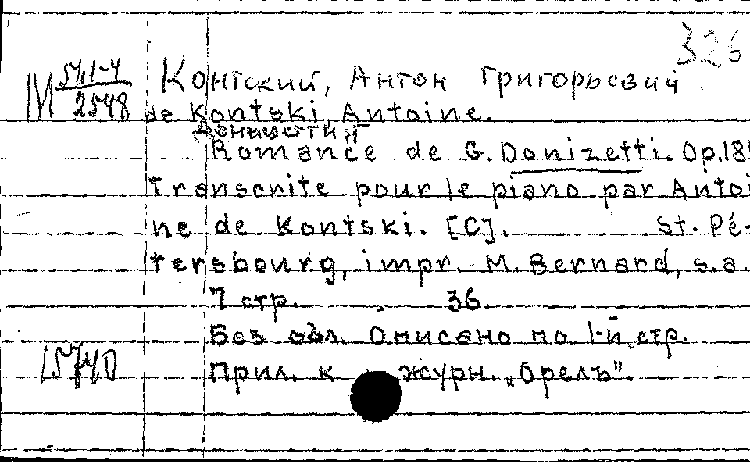 326
М 54,1-4
2548
Контский, Антон Григорьевич
de Kontski, Antoine.
Доницетти Г
Romance de G. Donizetti. Op.18
Transcrite pour le piano par Antoi-
ne de Kontski. [C]. St. Pé-
tersbourg, impr. M. Bernard, s.a.
7 стр. 36
Без обл. Описано по 1-й стр.
15740
Прил. к журн. „Орелъ".